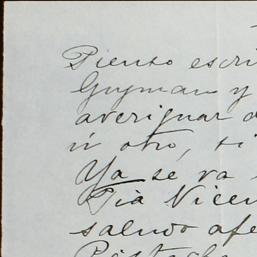 Pienso escri
Guzman y
averiguar a
ú otro, si
Ya se va
Tia Vicen
saludo afe